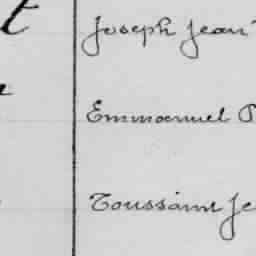 t Joseph Jean
Emmanuel P
Toussaint Je